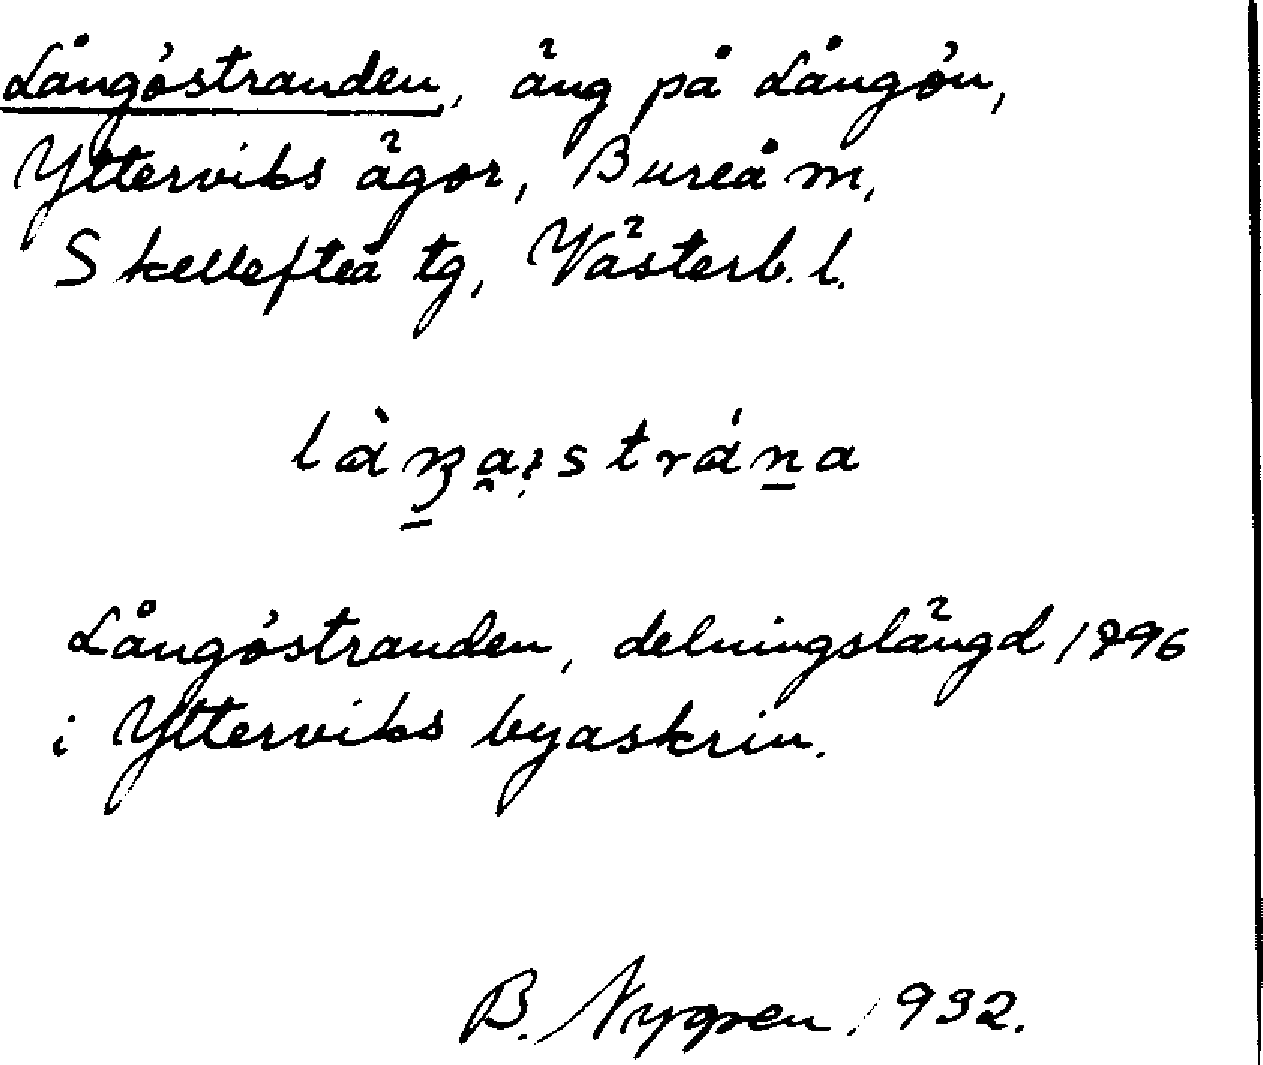 Långöstranden, äng på Långön,
Ytterviks ägor, Bureå m,
Skellefteå tg, Västerb. l.
Långöstranden, delningslängd 1796
i Ytterviks byaskrin.
B. Nygren 1932.